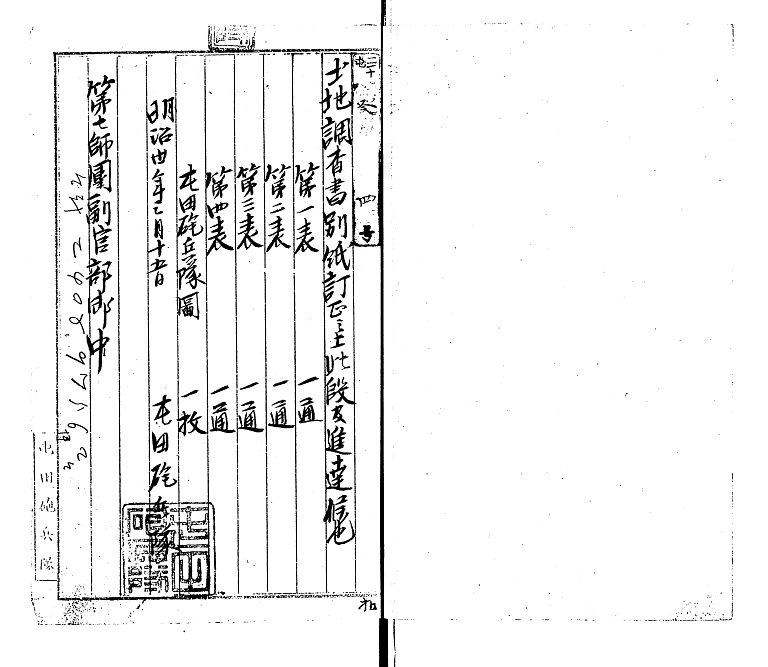 四号
土地調査書別紙訂正之上此段及進達候也
第一表 一通
第二表 一通
第三表 一通
第四表 一通
屯田砲兵隊圖 一枚
明治 年 月十五日 屯田砲兵隊
第七師團副官部御中
屯田砲兵隊